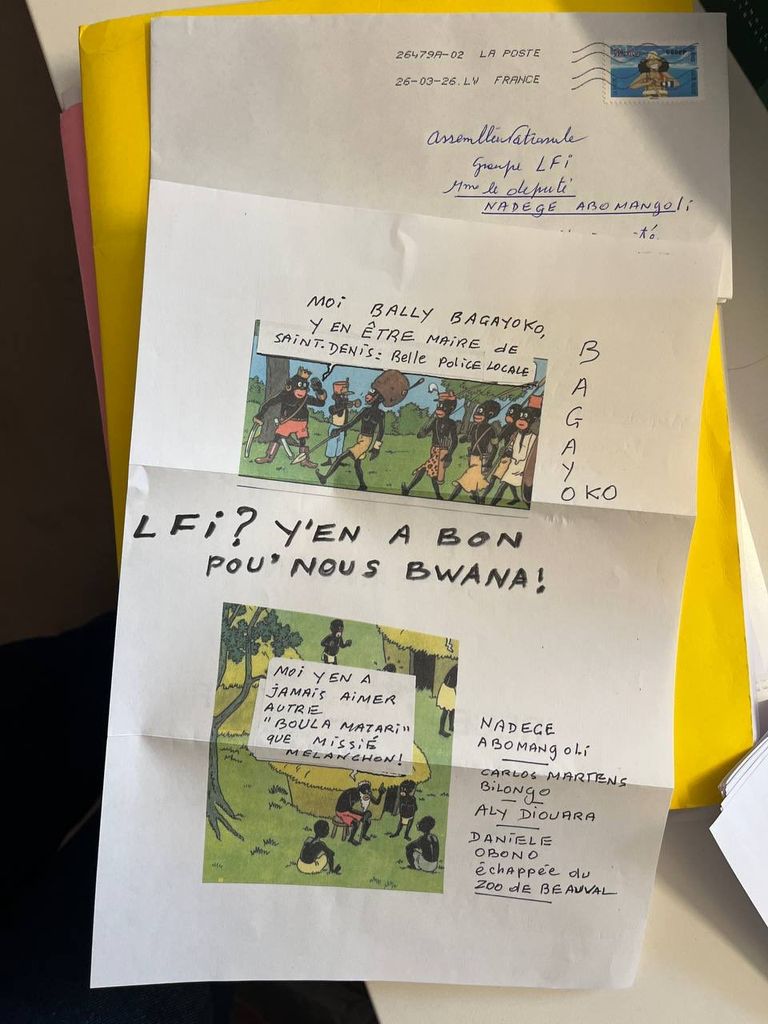 26479A-02 LA POSTE
26-03-26.LW FRANCE
Assemblée Nationale
Groupe LFi
Mme le député
NADEGE ABOMANGOLi
MOi BALLY BAGAYOKO,
Y EN ÊTRE MAIRE de
SAINT-DENIS: Belle POLICE LOCALE
B
A
G
A
Y
OKO
LFi? Y'EN A BON
POU' NOUS BWANA!
MOi Y EN A
JAMAIS AIMER
AUTRE
"BOULA MATARI"
QUE MISSIÉ
MELANCHON!
NADEGE
ABOMANGOLi
CARLOS MARTENS
BILONGO
ALY DIOUARA
DANIELE
OBONO
échappée du
ZOO de BEAUVAL